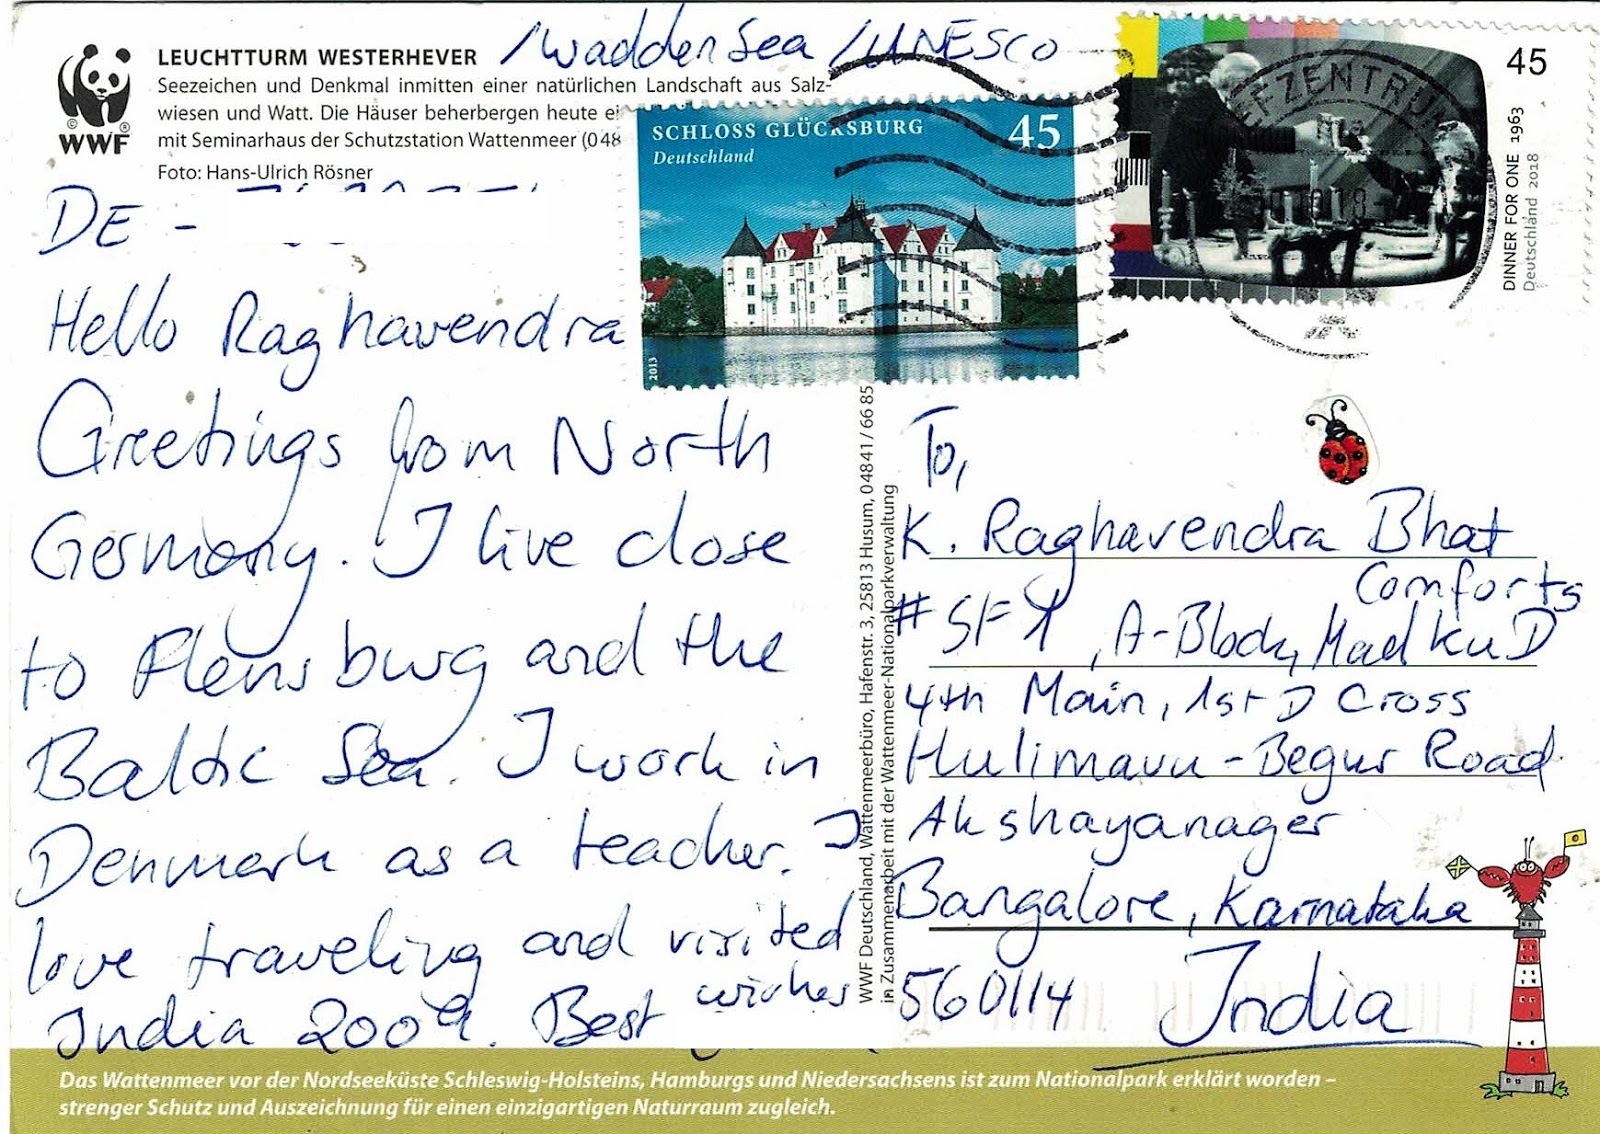 LEUCHTTURM WESTERHEVER /Wadden Sea /UNESCO
Seezeichen und Denkmal inmitten einer natürlichen Landschaft aus Salz-
wiesen und Watt. Die Häuser beherbergen heute
mit Seminarhaus der Schutzstation Wattenmeer (048
Foto: Hans-Ulrich Rösner
© ®
WWF
SCHLOSS GLÜCKSBURG 45
Deutschland
2013
45
DINNER FOR ONE 1963
Deutschland 2018
EFZENTRUM
DE -
Hello Raghavendra
Greetings from North
Germany. I live close
to Flensburg and the
Baltic Sea. I work in
Denmark as a teacher. I
love traveling and visited
India 2009. Best wishes
WWF Deutschland, Wattenmeerbüro, Hafenstr. 3, 25813 Husum, 04841/66 85
in Zusammenarbeit mit der Wattenmeer-Nationalparkverwaltung
To,
K. Raghavendra Bhat
# SF1, A-Block, Madhu Comforts
4th Main, 1st D Cross
Hulimavu-Begur Road
Akshayanager
Bangalore, Karnataka
560114 India
Das Wattenmeer vor der Nordseeküste Schleswig-Holsteins, Hamburgs und Niedersachsens ist zum Nationalpark erklärt worden –
strenger Schutz und Auszeichnung für einen einzigartigen Naturraum zugleich.